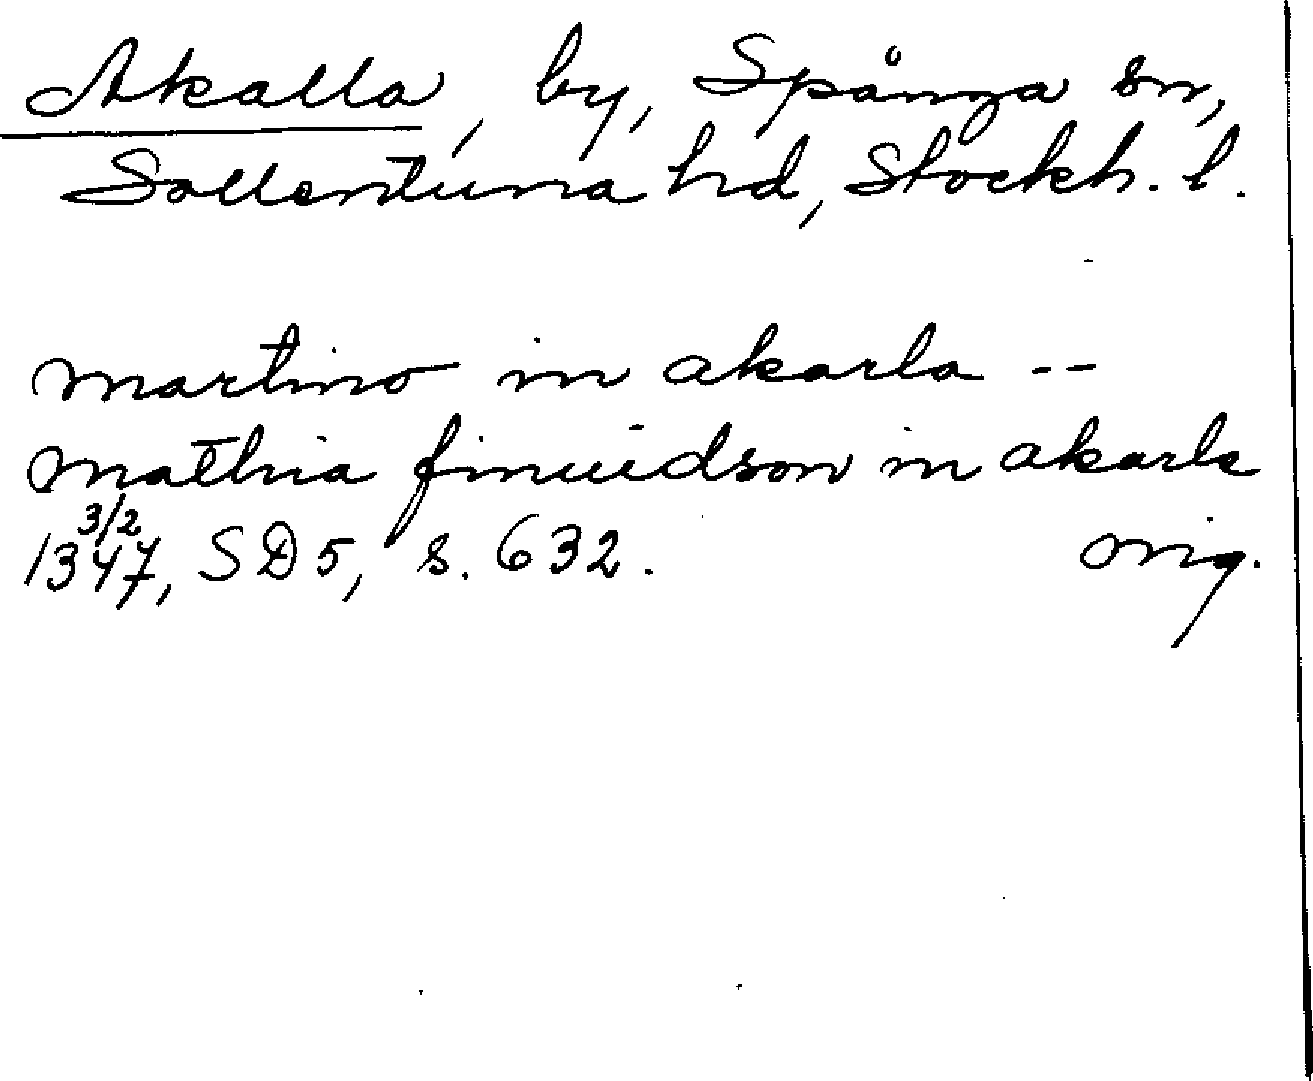 Akalla, by, Spånga sn,
Sollentuna hd, Stockh. l.
martino in akarla --
mathia finuidson in akarla
1347 3/2, SD 5, s. 632. orig.